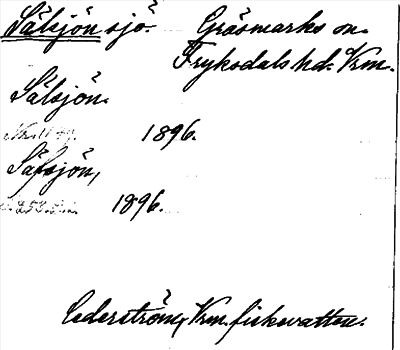 Sälsjön sjö. Gräsmarks sn.
Fryksdals hd. Vrm.
Sälsjön.
1896.
Säfsjön,
1896.
Cederström, Vrm. fiskevatten.